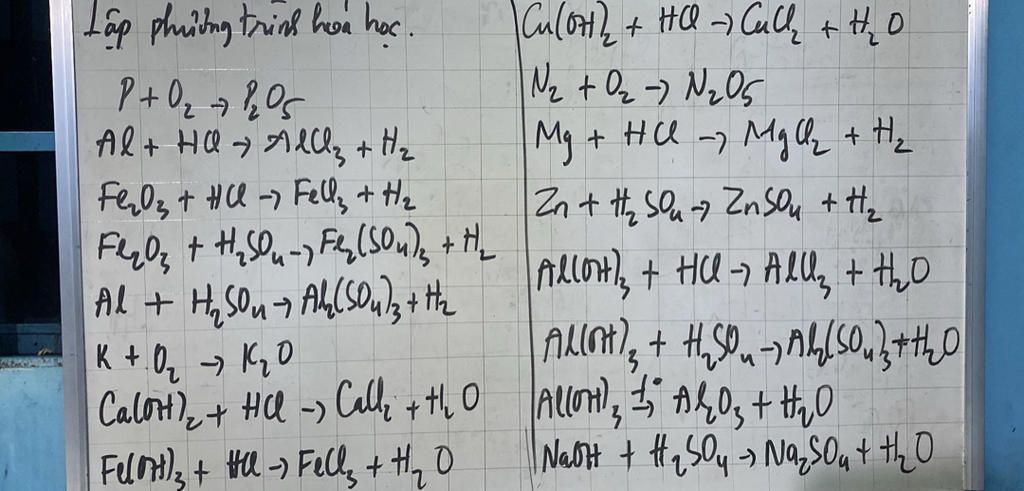 Lập phương trình hoá học.
P + O₂ → P₂O₅
Al + HCl → AlCl₃ + H₂
Fe₂O₃ + HCl → FeCl₃ + H₂
Fe₂O₃ + H₂SO₄ → Fe₂(SO₄)₃ + H₂
Al + H₂SO₄ → Al₂(SO₄)₃ + H₂
K + O₂ → K₂O
Ca(OH)₂ + HCl → CaCl₂ + H₂O
Fe(OH)₃ + HCl → FeCl₃ + H₂O
Cu(OH)₂ + HCl → CuCl₂ + H₂O
N₂ + O₂ → N₂O₅
Mg + HCl → MgCl₂ + H₂
Zn + H₂SO₄ → ZnSO₄ + H₂
Al(OH)₃ + HCl → AlCl₃ + H₂O
Al(OH)₃ + H₂SO₄ → Al₂(SO₄)₃ + H₂O
Al(OH)₃ t°→ Al₂O₃ + H₂O
NaOH + H₂SO₄ → Na₂SO₄ + H₂O